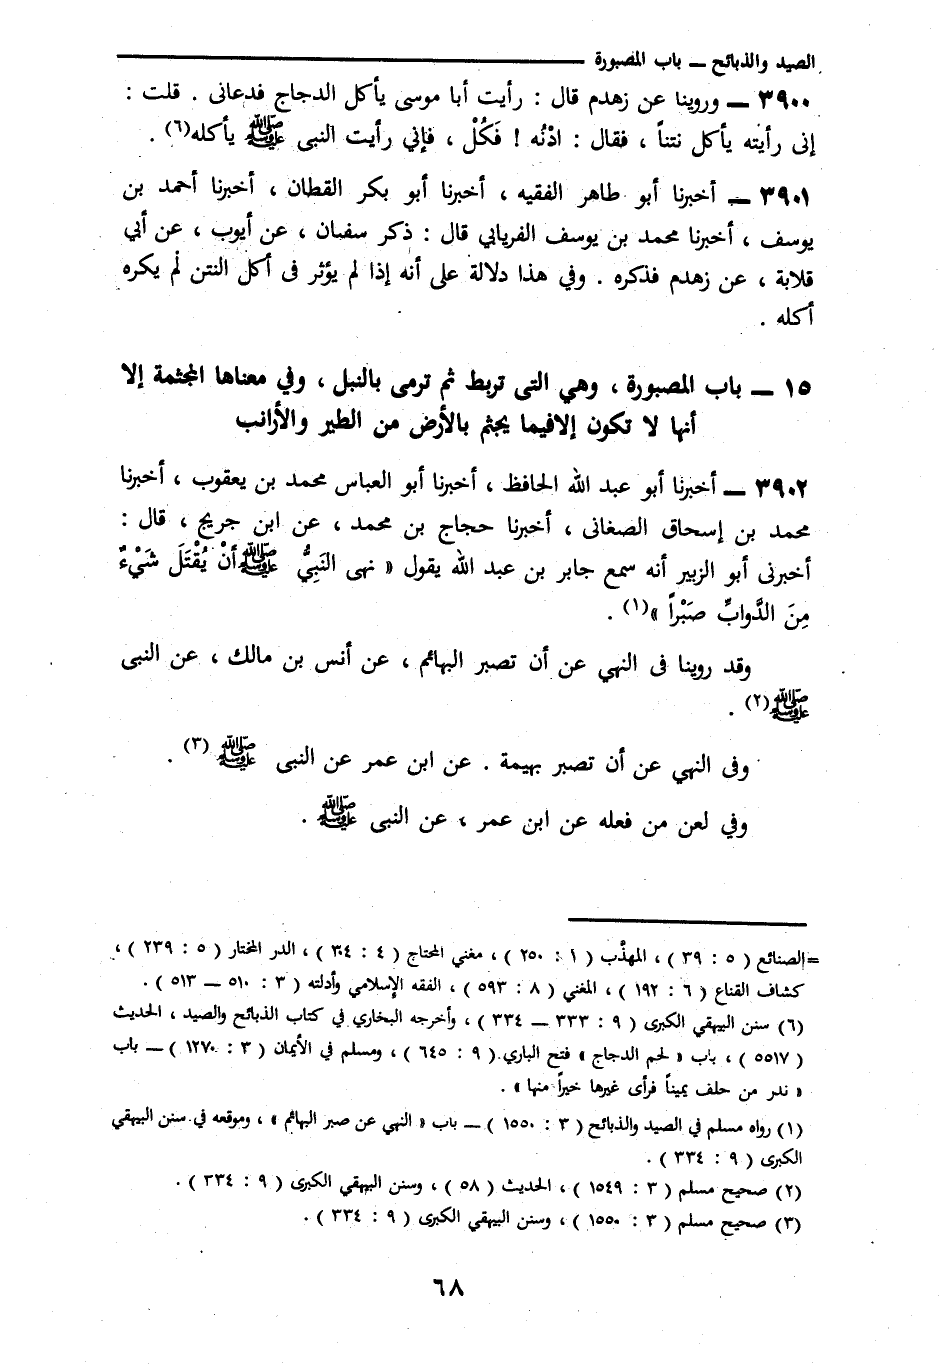 الصيد والذبائح ــ باب المصبورة
٣٩٠٠ ــ وروينا عن زهدم قال : رأيت أبا موسى يأكل الدجاج فدعانى . قلت :
إنى رأيته يأكل نتناً ، فقال : ادْنُه ! فَكُلْ ، فإني رأيت النبى ﷺ يأكله(٦) .
٣٩٠١ ــ أخبرنا أبو طاهر الفقيه ، أخبرنا أبو بكر القطان ، أخبرنا أحمد بن
يوسف ، أخبرنا محمد بن يوسف الفريابي قال : ذكر سفيان ، عن أيوب ، عن أبي
قلابة ، عن زهدم فذكره . وفي هذا دلالة على أنه إذا لم يؤثر فى أكل النتن لم يكره
أكله .
١٥ ــ باب المصبورة ، وهي التى تربط ثم ترمى بالنبل ، وفي معناها المجثمة إلا
أنها لا تكون إلافيما يجثم بالأرض من الطير والأرانب
٣٩٠٢ ــ أخبرنا أبو عبد الله الحافظ ، أخبرنا أبو العباس محمد بن يعقوب ، أخبرنا
محمد بن إسحاق الصغانى ، أخبرنا حجاج بن محمد ، عن ابن جريج ، قال :
أخبرنى أبو الزبير أنه سمع جابر بن عبد الله يقول « نهى النَبِيُّ ﷺ أنْ يُقْتَلَ شَيْءٌ
مِنَ الدَّوابِّ صَبْراً »(١) .
وقد روينا فى النهي عن أن تصبر البهائم ، عن أنس بن مالك ، عن النبى
ﷺ(٢) .
وفى النهي عن أن تصبر بهيمة . عن ابن عمر عن النبى ﷺ (٣) .
وفي لعن من فعله عن ابن عمر ، عن النبى ﷺ .
=الصنائع ( ٥ : ٣٩ ) ، المهذّب ( ١ : ٢٥٠ ) ، مغني المحتاج ( ٤ : ٣٠٤ ) ، الدر المختار ( ٥ : ٢٣٩ ) ،
كشاف القناع ( ٦ : ١٩٢ ) ، المغني ( ٨ : ٥٩٣ ) ، الفقه الإسلامي وأدلته ( ٣ : ٥١٠ ــ ٥١٣ ) .
(٦) سنن البيهقي الكبرى ( ٩ : ٣٣٣ ــ ٣٣٤ ) ، وأخرجه البخاري في كتاب الذبائح والصيد ، الحديث
( ٥٥١٧ ) ، باب « لحم الدجاج » فتح الباري ( ٩ : ٦٤٥ ) ، ومسلم في الأيمان ( ٣ : ١٢٧٠ ) ــ باب
« ندر من حلف يميناً فرأى غيرها خيراً منها » .
(١) رواه مسلم في الصيد والذبائح ( ٣ : ١٥٥٠ ) ــ باب « النهي عن صبر البهائم » ، وموقعه في سنن البيهقي
الكبرى ( ٩ : ٣٣٤ ) .
(٢) صحيح مسلم ( ٣ : ١٥٤٩ ) ، الحديث ( ٥٨ ) ، وسنن البيهقي الكبرى ( ٩ : ٣٣٤ ) .
(٣) صحيح مسلم ( ٣ : ١٥٥٠ ) ، وسنن البيهقي الكبرى ( ٩ : ٣٣٤ ) .
٦٨